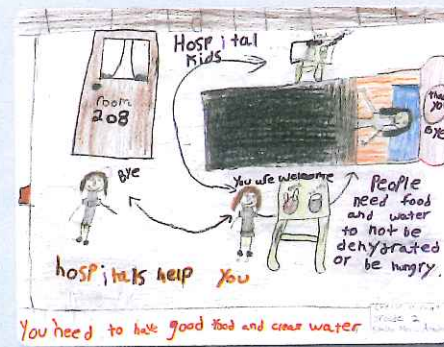 Hospital
Kids
room
208
thank
you
Bye
Bye
You are welcome
People
need food
and water
to not be
dehydrated
or be hungry.
hospitals help you
You need to have good food and clean water
Grade 2